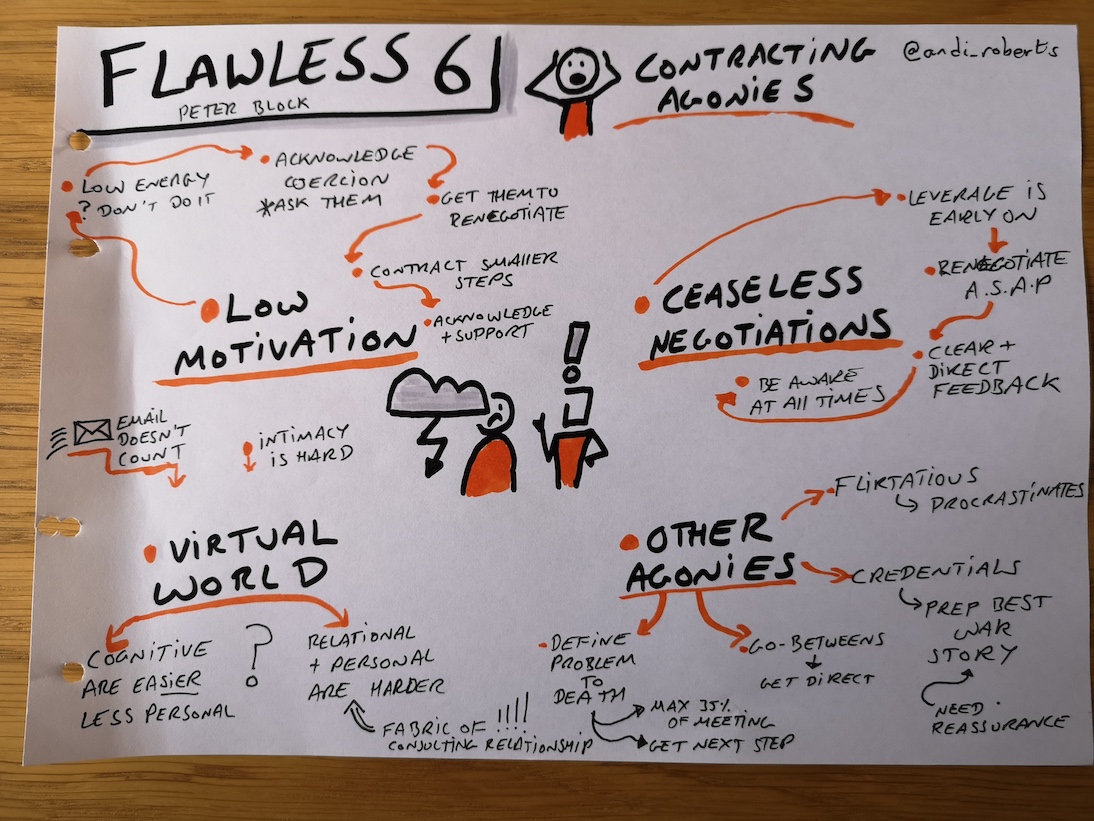 FLAWLESS 6
PETER BLOCK
CONTRACTING
AGONIES
@andi_roberts
LOW ENERGY
? DON'T DO IT
ACKNOWLEDGE
COERCION
*ASK THEM
GET THEM TO
RENEGOTIATE
CONTRACT SMALLER
STEPS
ACKNOWLEDGE
+ SUPPORT
LOW
MOTIVATION
CEASELESS
NEGOTIATIONS
LEVERAGE IS
EARLY ON
RENEGOTIATE
A.S.A.P
CLEAR +
DIRECT
FEEDBACK
BE AWARE
AT All TIMES
EMAIL
DOESN'T
COUNT
INTIMACY
IS HARD
VIRTUAL
WORLD
COGNITIVE
ARE EASIER
LESS PERSONAL
?
RELATIONAL
+ PERSONAL
ARE HARDER
FABRIC OF !!!!
CONSULTING RELATIONSHIP
OTHER
AGONIES
FLIRTATIOUS
PROCRASTINATES
CREDENTIALS
PREP BEST
WAR
STORY
NEED
REASSURANCE
GO-BETWEENS
GET DIRECT
DEFINE
PROBLEM
TO
DEATH
MAX 35%
OF MEETING
GET NEXT STEP